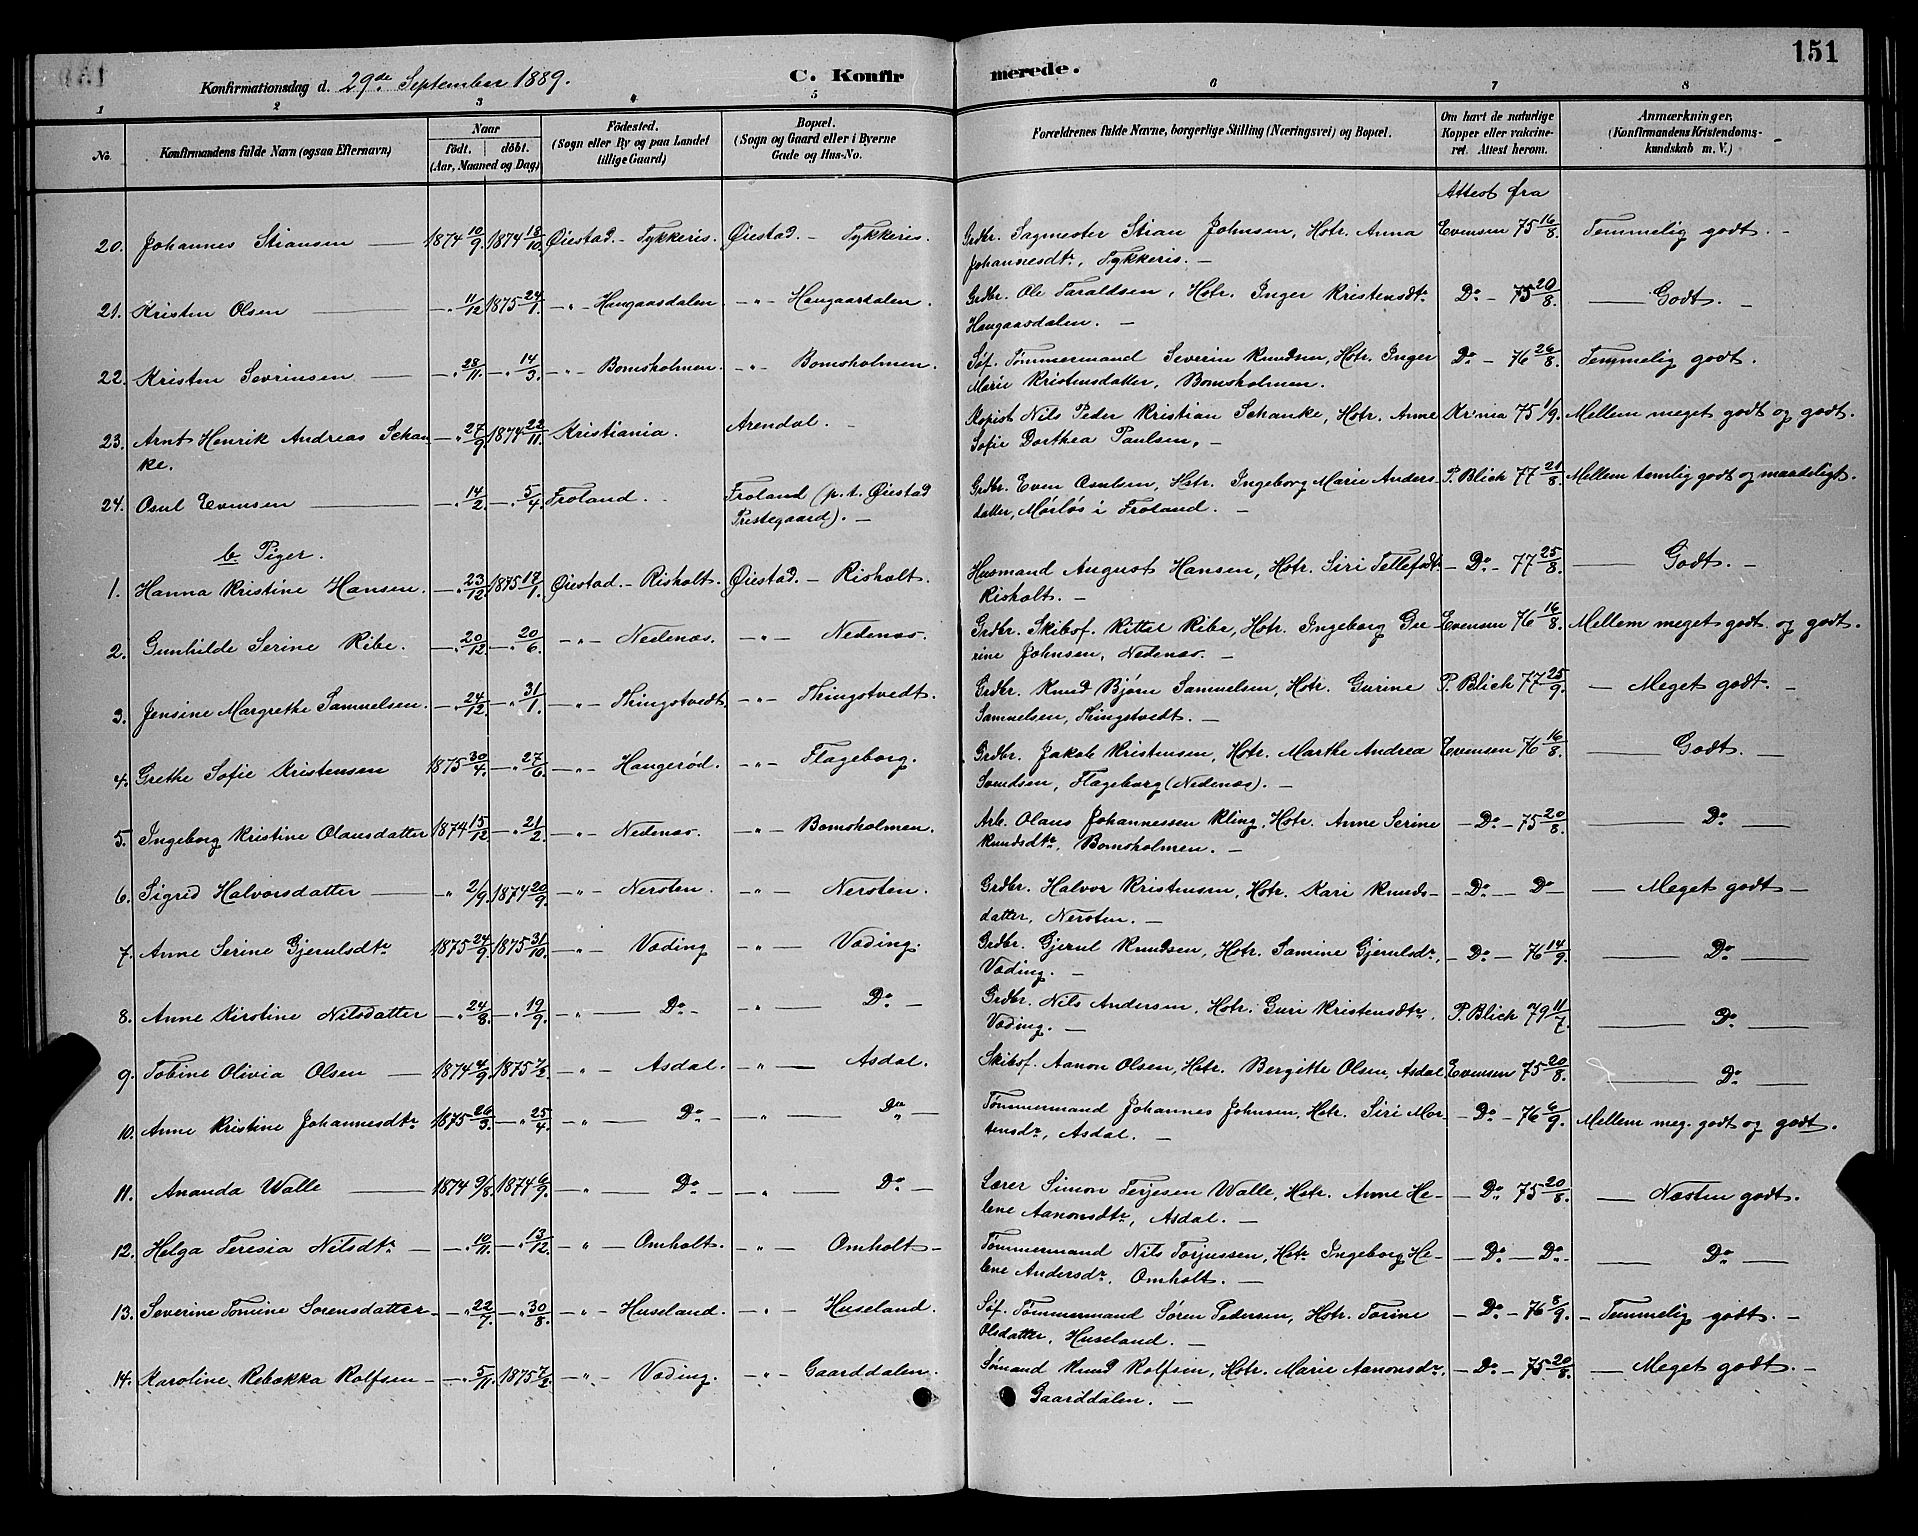 151
Konfirmationsdag d. 29de September 1889.
C. Konfirmerede.
1 2 3 4 5 6 7 8
No. Konfirmandens fulde Navn (ogsaa Efternavn) Naar født. døbt. (Aar, Maaned og Dag) Födested. (Sogn eller By og paa Landet tillige Gaard) Bopæl. (Sogn og Gaard eller i Byerne Gade og Hus-No. Forældrenes fulde Navne, borgerlige Stilling (Næringsvei) og Bopæl. Om havt de naturlige Kopper eller vakcineret. Attest herom. Anmærkninger, (Konfirmandens Kristendomskundskab m. V.)
Attest fra
20. Johannes Stiansen 1874 10/9. 1874 18/10. Øiestad - Tykkeris. Øiestad - Tykkeris. Grdbr. Sagmester Stian Johnsen, Hstr. Anna Evensen 75 16/8. Temmelig godt. -
Johannesdtr, Tykkeris. -
21. Kristen Olsen - " 11/12 1875 24/1. - " - Haugaasdalen - " - Haugaasdalen. Grdbr. Ole Taraldsen, Hstr. Inger Kristensdtr Do - 75 20/8. Godt. -
Haugaasdalen. -
22. Kristen Sevrinsen - " 28/11. - " 14/3. - " - Bomsholmen. - " - Bomsholmen. Søf. Tømmermand Severin Knudsen, Hstr. Inger Do - 76 26/8. Temmelig godt.
Marie Kristensdatter, Bomsholmen.
23. Arnt Henrik Andreas Schan - " 27/9. 1874 22/11. Kristiania. Arendal. - Kopist Nils Peder Kristian Schanke, Hstr. Anne Kr:nia 75 1/9. Mellem meget godt og godt.
ke. Sofie Dorthea Paulsen, -
24. Osul Evensen - " 14/2. - " 5/4. Froland. Froland (p.t. Øiestad Grdbr. Even Osulsen, Hstr. Ingeborg Marie Anders P. Blich 77 21/8. Mellem temlig godt og maadeligt.
Prestegaard). - datter, Mørløs i Froland. -
b Piger.
1. Hanna Kristine Hansen. - " 23/12. 1875 17/1. Øiestad - Risholt. Øiestad - Risholt. Husmand August Hansen, Hstr. Siri Tellefsdtr - Do - 77 25/8. Godt. -
Risholt. -
2. Gunhilde Serine Ribe. - " 20/12. - " 20/6. - " - Nedenæs. - " - Nedenæs. Grdbr. Skibsf. Kittel Ribe, Hstr. Ingeborg Gu Evensen 76 16/8. Mellem meget godt og godt.
rine Johnsen, Nedenæs. -
3. Jensine Margrethe Samuelsen. - " 24/12. - " 31/1. - " - Thingstvedt. - " - Thingstvedt. Grdbr. Knud Bjørn Samuelsen, Hstr. Gurine P. Blich 77 25/9. - Meget godt. -
Samuelsen, Thingstvedt. -
4. Grethe Sofie Kristensen 1875 30/4. - " 27/6 - " - Haugerød. - " - Flageborg. Grdbr. Jakob Kristensen, Hstr. Marthe Andrea Evensen 76 16/8. Godt. -
Svendsen, Flageborg (Nedenæs). -
5. Ingeborg Kristine Olausdatter 1874 15/12 - " 21/2. - " - Nedenæs. - " - Bomsholmen. Arb. Olaus Johannessen Kling, Hstr. Anne Serine - Do - 75 20/8. Do
Knudsdtr, Bomsholmen. -
6. Sigrid Halvorsdatter " 2/9. 1874 20/9. - " - Nersten. - " - Nersten. Grdbr. Halvor Kristensen, Hstr. Kari Knuds- - Do - Do - Meget godt -
datter, Nersten. -
7. Anne Serine Gjerulsdtr 1875 24/9. 1875 31/10. - " - Væding - " - Væding. Grdbr. Gjerul Knudsen, Hstr. Samine Gjerulsdr, - Do - 76 14/9. Do
Væding. -
8. Anne Kirstine Nilsdatter - " 24/8. - " 19/9. - " - Do - - " - Do - Grdbr. Nils Andersen, Hstr. Guri Kristensdtr, P. Blich 79 11/7. Do
Væding. -
9. Tobine Olivia Olsen - 1874 4/9. 1875 7/2. - " - Asdal. - " - Asdal. Skibsf. Aanon Olsen, Hstr. Bergitte Olsen, Asdal Evensen 75 20/8. Do
10. Anne Kristine Johannesdtr 1875 26/3. - " 25/4. - " - Do - - " - Do - Tømmermand Johannes Johnsen, Hstr. Siri Mor- - Do - 76 6/9. Mellem meg. godt og godt.
tensdr, Asdal. -
11. Ananda Walle 1874 9/8. 1874 6/9. - " - Do - - " - Do - Lærer Simon Terjesen Walle, Hstr. Anne He- - Do 75 20/8. - Næsten godt.
lene Aanonsdtr, Asdal. -
12. Helga Teresia Nilsdtr - - " 10/11. - " 13/12. - " Omholt. - " - Omholt - Tømmermand Nils Torjussen, Hstr Ingeborg He- - Do - Do - Do
lene Andersdr, Omholt. -
13. Severine Tomine Sorensdatter - " 22/7. - " 30/8. - " - Huseland. - " - Huseland. Søf. Tømmermand Søren Pedersen, Hstr. Torine - Do - 76 8/9. - Temmelig godt. -
Olsdatter, Huseland. -
14. Karoline Rebækka Rolfsen - " 5/11. 1875 7/2. - " - Væding. - " - Gaarddalen. Sømand Knud Rolfsen, Hstr. Marie Aanonsdr, - Do - 75 20/8. - Meget godt. -
Gaarddalen. -